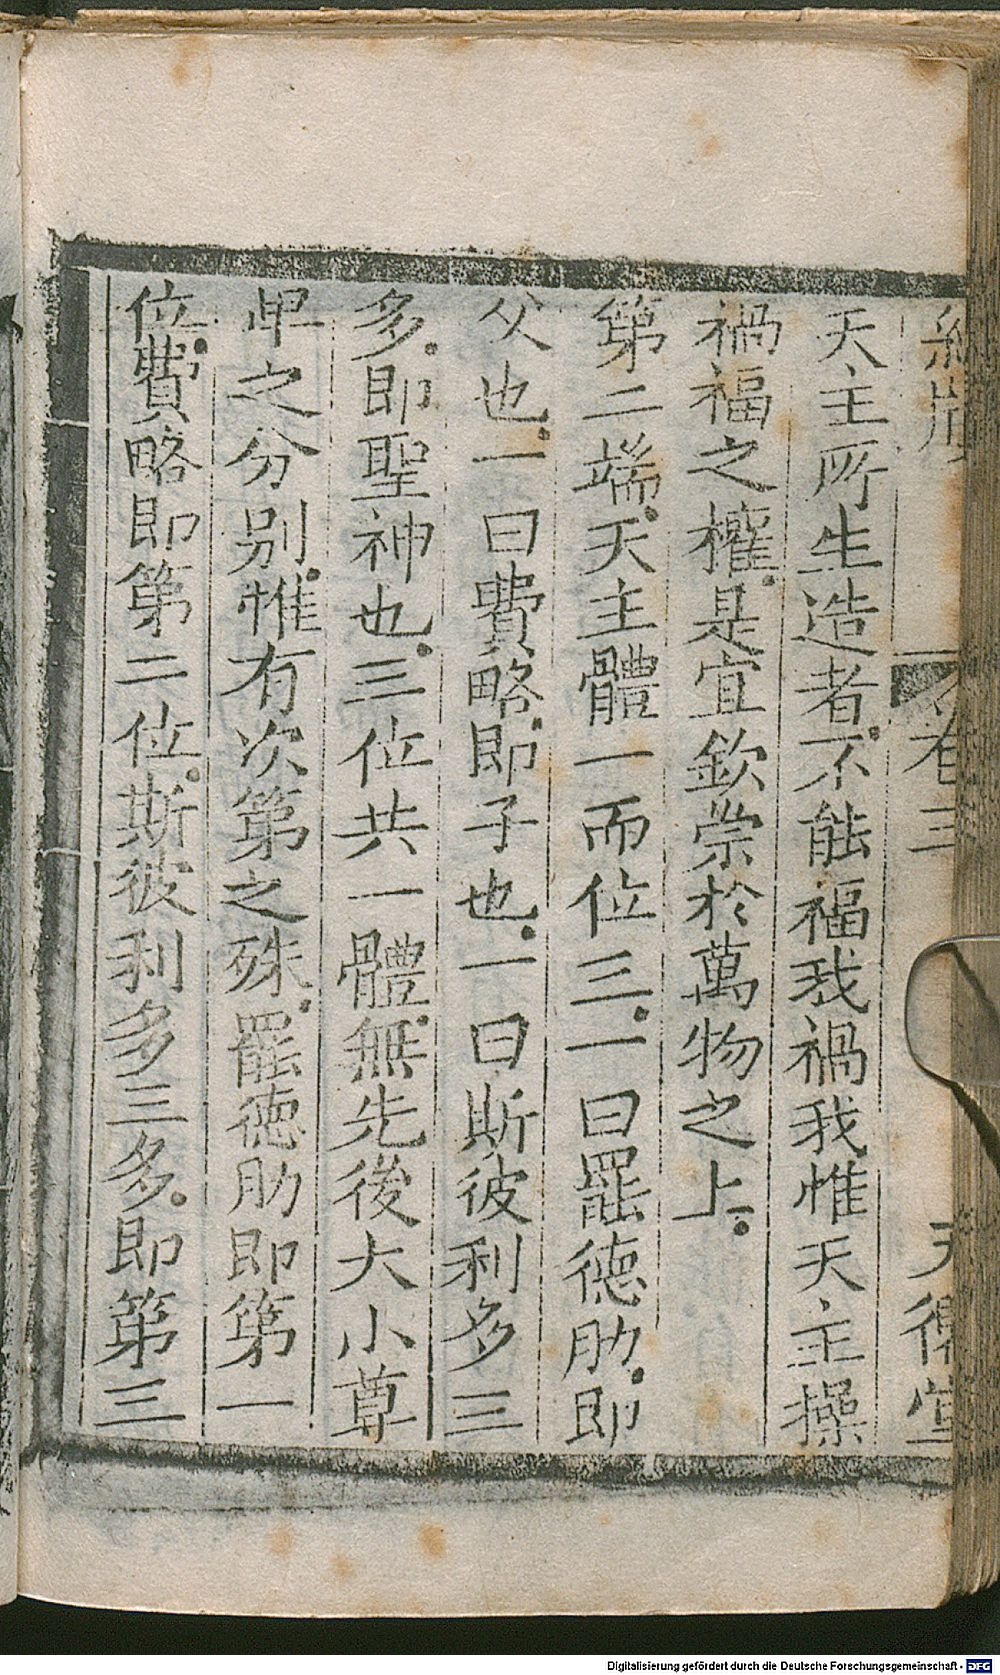 卷三
天主所生造者。不能福我禍我惟天主操
禍福之權。是宜欽崇於萬物之上。
第二端。天主體一而位三。一曰罷德肋。即
父也。一曰費略。即子也。一曰斯彼利多三
多。即聖神也。三位共一體。無先後大小尊
卑之分別。惟有次第之殊。罷德肋即第一
位。費略即第二位。斯彼利多三多。即第三
Digitalisierung gefördert durch die Deutsche Forschungsgemeinschaft - DFG